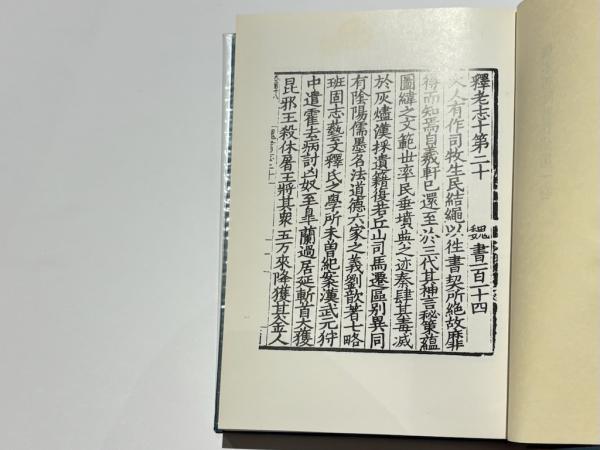 釋老志十第二十　魏書一百一十四
大人有作司牧生民結繩以往書契所絶故靡
得而知焉自羲軒已還至於三代其神言秘策蘊
圖緯之文範世率民垂墳典之迹秦肆其毒滅
於灰燼漢採遺籍復若丘山司馬遷區別異同
有陰陽儒墨名法道德六家之義劉歆著七略
班固志藝文釋氏之學所未曾紀案漢武元狩
中遣霍去病討凶奴至皐蘭過居延斬首大獲
昆邪王殺休屠王將其衆五万來降獲其金人